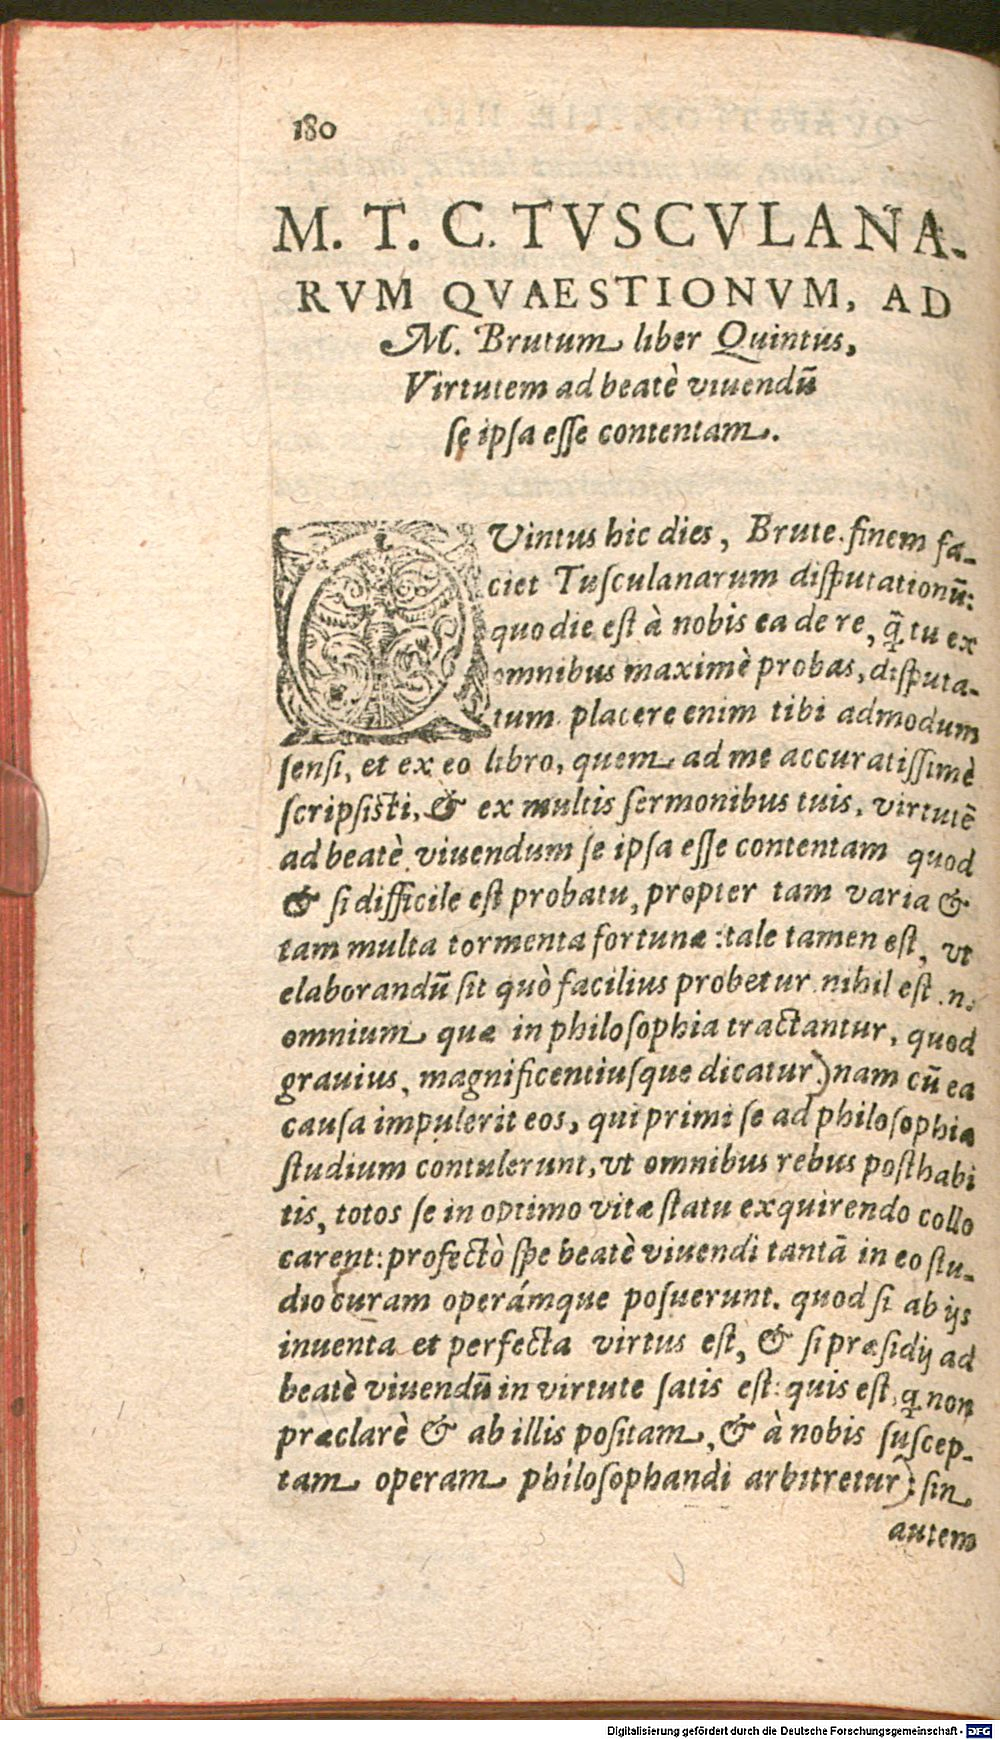 180
M. T. C. TVSCVLANA-
RVM QVAESTIONVM, AD
M. Brutum liber Quintus,
Virtutem ad beatè viuendū
se ipsa esse contentam.
QVintus hic dies, Brute. finem fa-
ciet Tusculanarum disputationū:
quo die est à nobis ea de re, q̃ tu ex
omnibus maximè probas, disputa-
tum. placere enim tibi admodum
sensi, et ex eo libro, quem ad me accuratissimè
scripsisti, & ex multis sermonibus tuis, virtutē
ad beatè viuendum se ipsa esse contentam quod
& si difficile est probatu, propter tam varia &
tam multa tormenta fortunæ: tale tamen est, vt
elaborandū sit quò facilius probetur. nihil est .n.
omnium quæ in philosophia tractantur, quod
grauius, magnificentiusque dicatur.) nam cū ea
causa impulerit eos, qui primi se ad philosophiæ
studium contulerunt, vt omnibus rebus posthabi
tis, totos se in optimo vitæ statu exquirendo collo
carent: profectò spe beatè viuendi tantā in eo stu-
dio curam operámque posuerunt. quod si ab ijs
inuenta et perfecta virtus est, & si præsidij ad
beatè viuendū in virtute satis est: quis est, q̃ non
præclarè & ab illis positam, & à nobis suscep-
tam operam philosophandi arbitretur): sin
autem
Digitalisierung gefördert durch die Deutsche Forschungsgemeinschaft - DFG